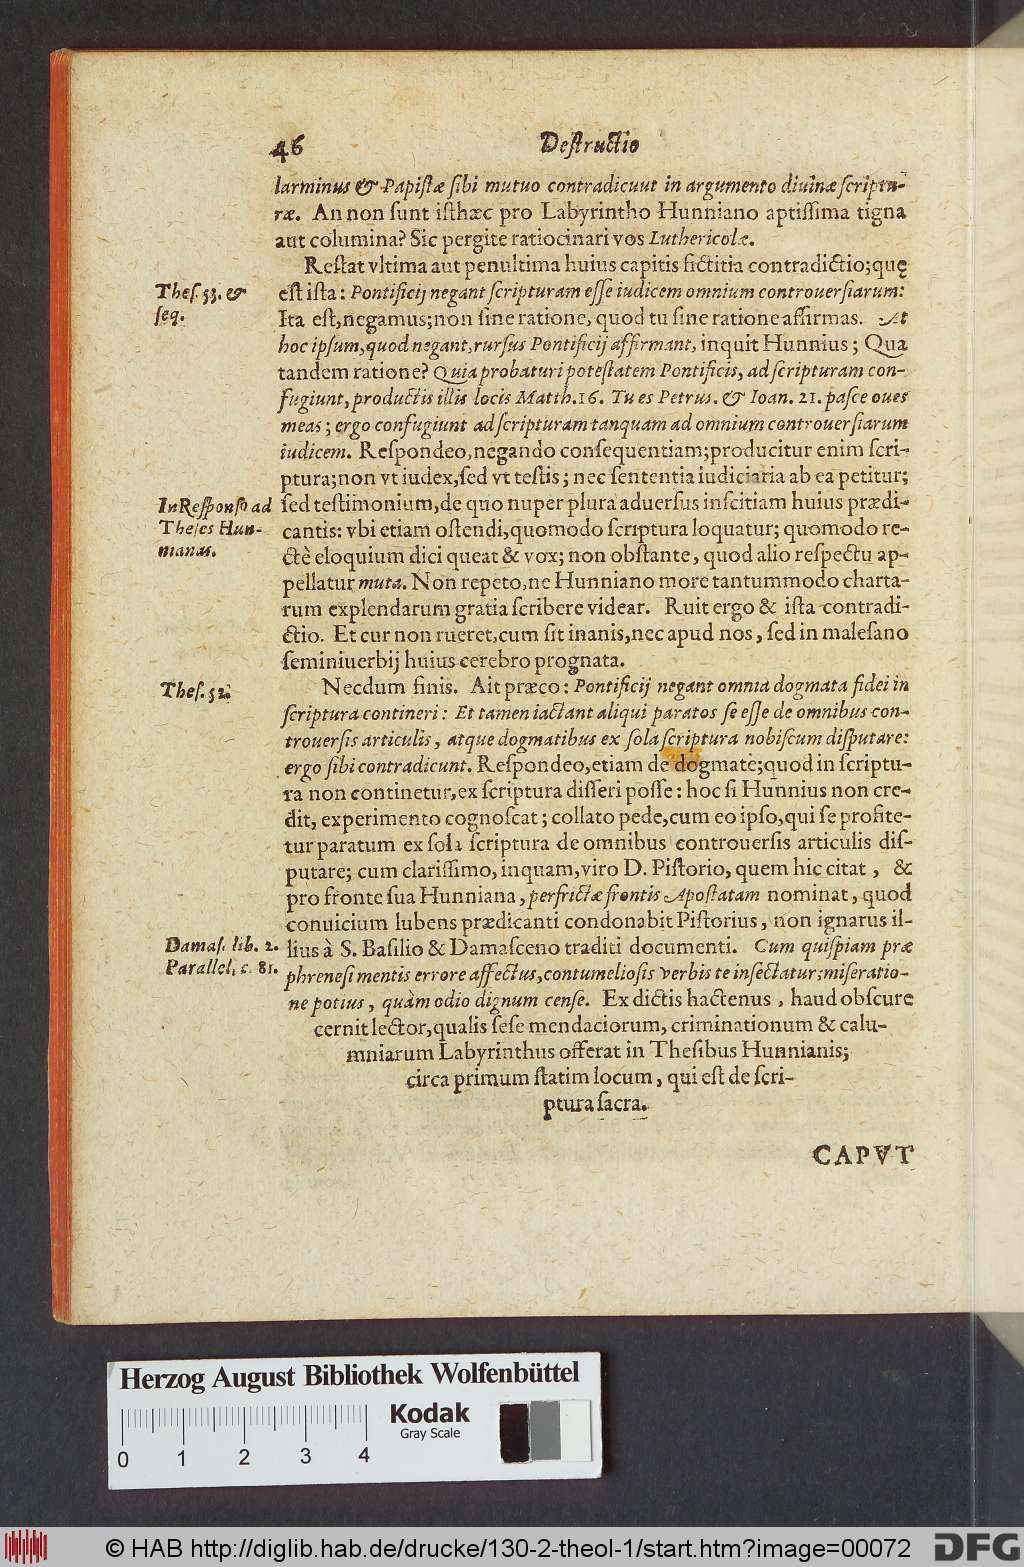 46 Destructio
larminus & Papistæ sibi mutuo contradicuut in argumento diuinæ scriptu-
ræ. An non sunt isthæc pro Labyrintho Hunniano aptissima tigna
aut columina? Sic pergite ratiocinari vos Luthericolæ.
Restat vltima aut penultima huius capitis fictitia contradictio; quę
Thes. 53. &
seq.
est ista: Pontificij negant scripturam esse iudicem omnium controuersiarum:
Ita est, negamus; non sine ratione, quod tu sine ratione affirmas. At
hoc ipsum, quod negant, rursus Pontificij affirmant, inquit Hunnius; Qua
tandem ratione? Quia probaturi potestatem Pontificis, ad scripturam con-
fugiunt, productis illis locis Matth. 16. Tu es Petrus. & Ioan. 21. pasce oues
meas; ergo confugiunt ad scripturam tanquam ad omnium controuersiarum
iudicem. Respondeo, negando consequentiam; producitur enim scri-
ptura; non vt iudex, sed vt testis; nec sententia iudiciaria ab ea petitur;
In Responso ad
Theses Hun-
nianas.
sed testimonium, de quo nuper plura aduersus inscitiam huius prædi-
cantis: vbi etiam ostendi, quomodo scriptura loquatur; quomodo re-
ctè eloquium dici queat & vox; non obstante, quod alio respectu ap-
pellatur muta. Non repeto, ne Hunniano more tantummodo charta-
rum explendarum gratia scribere videar. Ruit ergo & ista contradi-
ctio. Et cur non rueret, cum sit inanis, nec apud nos, sed in malesano
seminiuerbij huius cerebro prognata.
Thes. 52.
Necdum finis. Ait præco: Pontificij negant omnia dogmata fidei in
scriptura contineri: Et tamen iactant aliqui paratos se esse de omnibus con-
trouersis articulis, atque dogmatibus ex sola scriptura nobiscum disputare:
ergo sibi contradicunt. Respondeo, etiam de dogmate; quod in scriptu-
ra non continetur, ex scriptura disseri posse: hoc si Hunnius non cre-
dit, experimento cognoscat; collato pede, cum eo ipso, qui se profite-
tur paratum ex sola scriptura de omnibus controuersis articulis dis-
putare; cum clarissimo, inquam, viro D. Pistorio, quem hic citat, &
pro fronte sua Hunniana, perfrictæ frontis Apostatam nominat, quod
conuicium lubens prædicanti condonabit Pistorius, non ignarus il-
Damas. lib. 2.
Parallel. c. 81.
lius à S. Basilio & Damasceno traditi documenti. Cum quispiam præ
phrenesi mentis errore affectus, contumeliosis verbis te insectatur; miseratio-
ne potius, quàm odio dignum cense. Ex dictis hactenus, haud obscure
cernit lector, qualis sese mendaciorum, criminationum & calu-
mniarum Labyrinthus offerat in Thesibus Hunnianis;
circa primum statim locum, qui est de scri-
ptura sacra.
CAPVT
Herzog August Bibliothek Wolfenbüttel
0 1 2 3 4
Kodak
Gray Scale
© HAB http://diglib.hab.de/drucke/130-2-theol-1/start.htm?image=00072
DFG